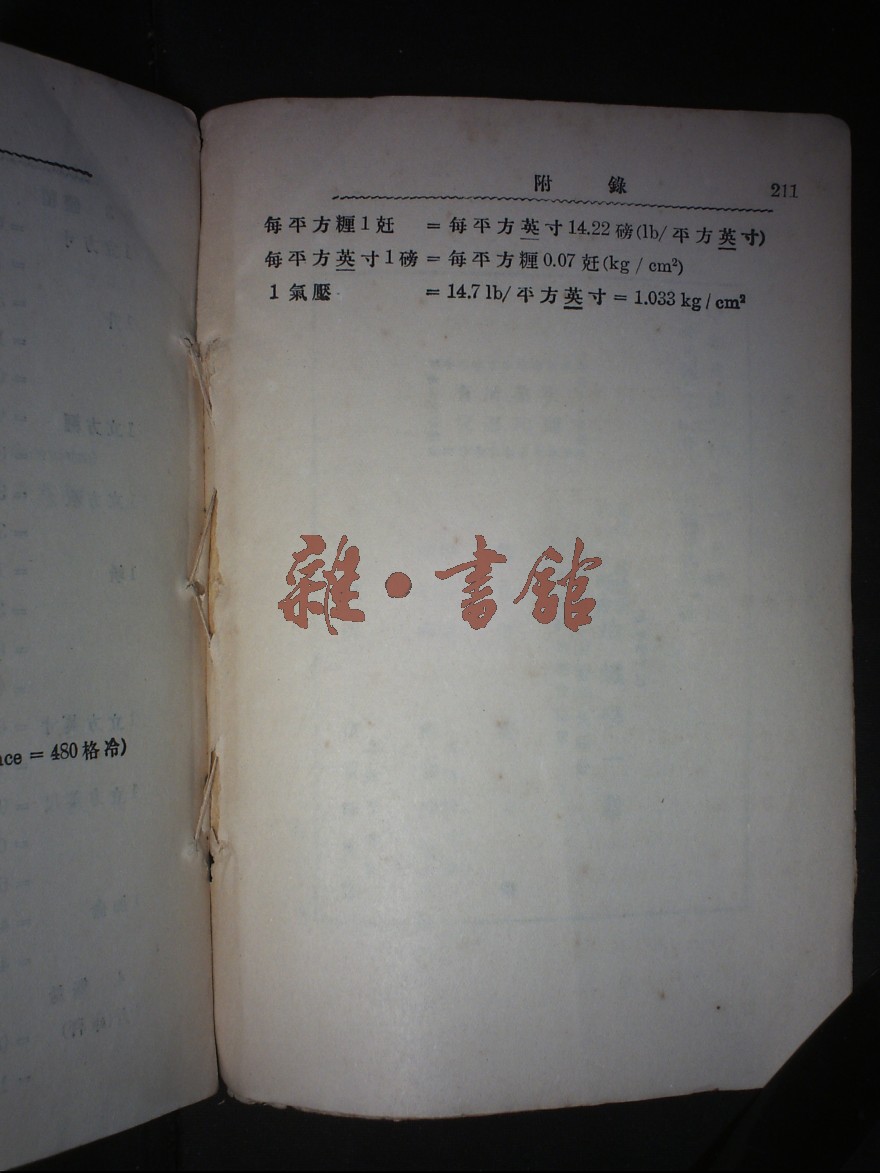 附 錄 211
每平方糎1兛 = 每平方英寸14.22磅(lb/平方英寸)
每平方英寸1磅 = 每平方糎0.07兛(kg/cm²)
1氣壓 = 14.7 lb/平方英寸 = 1.033 kg/cm²
雜·書館
ce = 480格冷)